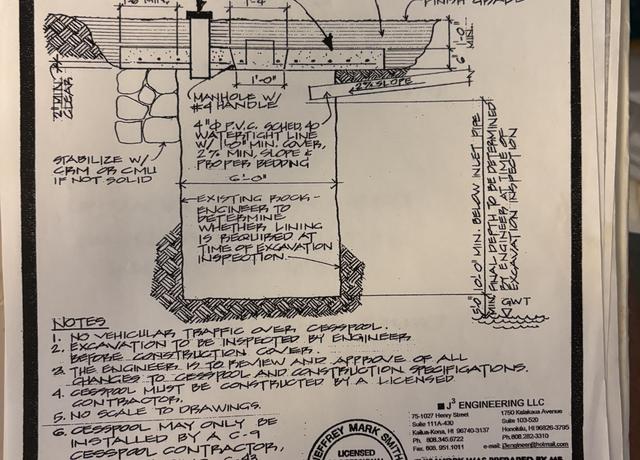 1'-4"
FINISH GRADE
1'-0"
MIN.
6"
2' MIN.
CLEAR
1'-0"
2% SLOPE
MANHOLE W/
#4 HANDLE
4"Φ P.V.C. SCHED. 40
WATERTIGHT LINE
W/ 1'-0" MIN. COVER,
2% MIN. SLOPE &
PROPER BEDDING
STABILIZE W/
CRM OR CMU
IF NOT SOLID
6'-0"
EXISTING ROCK -
ENGINEER TO
DETERMINE
WHETHER LINING
IS REQUIRED AT
TIME OF EXCAVATION
INSPECTION.
10'-0" MIN. BELOW INLET PIPE
FINAL DEPTH TO BE DETERMINED
BY ENGINEER AT TIME OF
EXCAVATION INSPECTION
MIN
GWT
NOTES
1. NO VEHICULAR TRAFFIC OVER CESSPOOL.
2. EXCAVATION TO BE INSPECTED BY ENGINEER
BEFORE CONSTRUCTION COVER.
3. THE ENGINEER IS TO REVIEW AND APPROVE OF ALL
CHANGES TO CESSPOOL AND CONSTRUCTION SPECIFICATIONS.
4. CESSPOOL MUST BE CONSTRUCTED BY A LICENSED
CONTRACTOR.
5. NO SCALE TO DRAWINGS.
6. CESSPOOL MAY ONLY BE
INSTALLED BY A C-9
CESSPOOL CONTRACTOR,
JEFFREY MARK SMITH
LICENSED
J³ ENGINEERING LLC
75-1027 Henry Street
Suite 111A-430
Kailua-Kona, HI 96740-3137
Ph. 808.345.6722
Fax. 608.951.1011
1750 Kalakaua Avenue
Suite 103-520
Honolulu, HI 96826-3795
Ph.808.282-3310
e-mail: j3engineer@hotmail.com